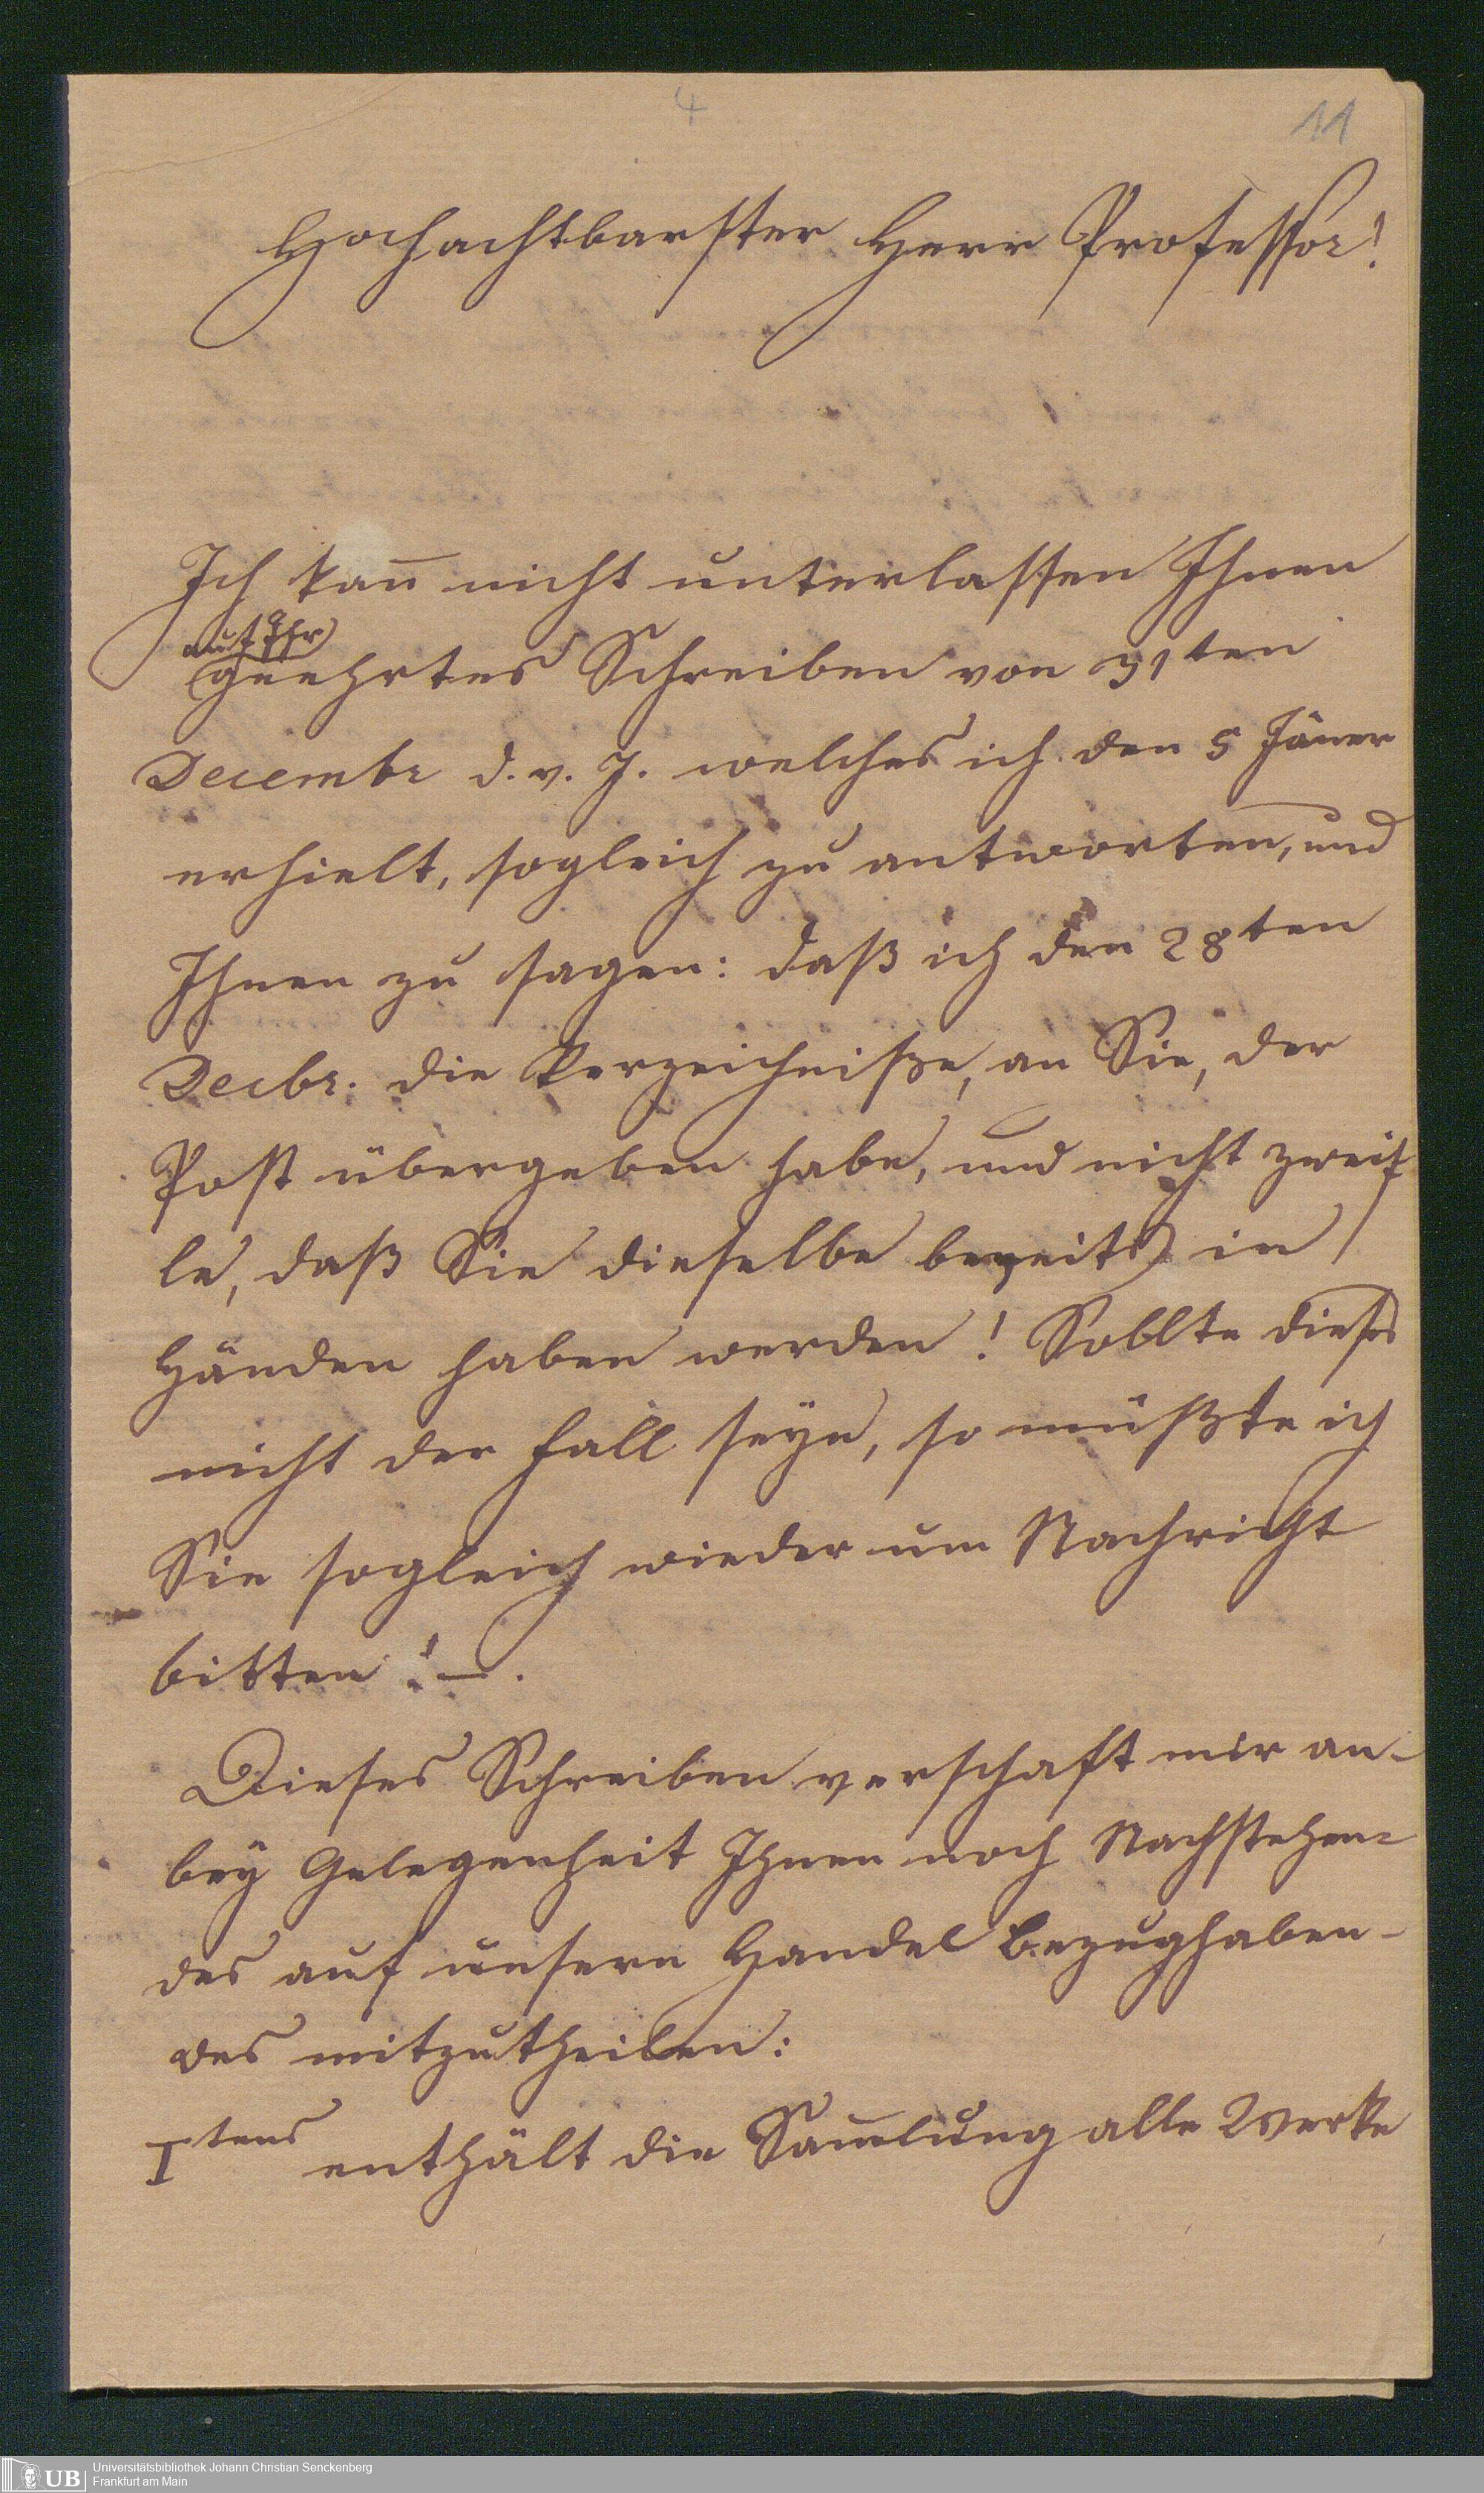 4
11
Hochachtbarster Herr Professor!
Ich kan̄ nicht unterlassen Ihnen
auf Ihr
geehrtes Schreiben von 31ten
Decembr d. v. J. welches ich den 5 Jäner
erhielt, sogleich zu antworten, und
Ihnen zu sagen: daß ich den 28ten
Decbr. die Verzeichniße, an Sie, der
Post übergeben habe, und nicht zweif
le, daß Sie dieselbe bereits in
Händen haben werden! Sollte dieses
nicht der Fall seyn, so müßte ich
Sie sogleich wieder um Nachricht
bitten! —.
Dieses Schreiben verschaft mir an-
bey Gelegenheit Ihnen noch Nachstehen=
des auf unsern Handel Bezughaben-
des mitzutheilen:
Itens enthält die Sam̄lung alle Werke
UB
Universitätsbibliothek Johann Christian Senckenberg
Frankfurt am Main